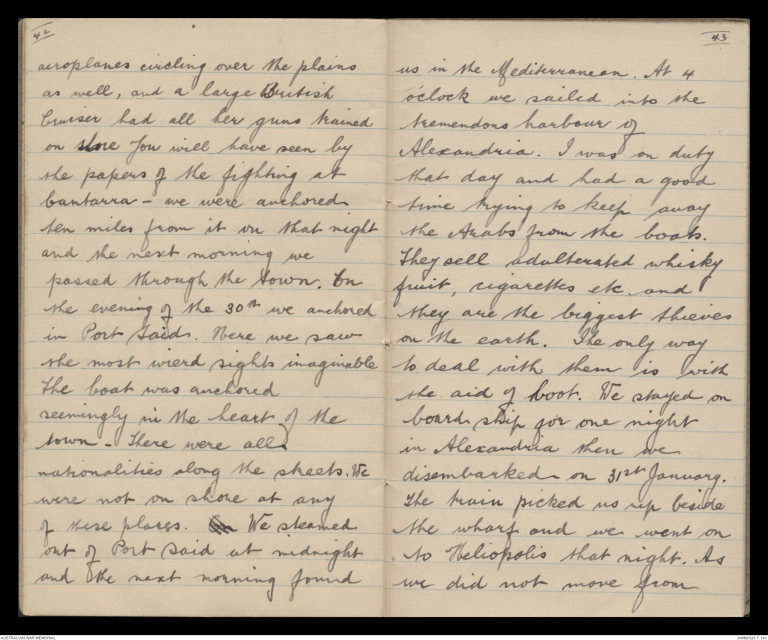 42
aeroplanes circling over the plains
as well, and a large British
Cruiser had all her guns trained
on shore You will have seen by
the papers of the fighting at
Cantarra - we were anchored
ten miles from it on that night
and the next morning we
passed through the town. On
the evening of the 30th we anchored
in Port Said. Here we saw
the most wierd sights imaginable
The boat was anchored
seemingly in the heart of the
town - There were all
nationalities along the streets. We
were not on shore at any
of these places. We steamed
out of Port Said at midnight
and the next morning found
43
us in the Mediterranean. At 4
o'clock we sailed into the
tremendous harbour of
Alexandria. I was on duty
that day and had a good
time trying to keep away
the Arabs from the boats.
They sell adulterated whisky
fruit, cigarettes etc. and
they are the biggest thieves
on the earth. The only way
to deal with them is with
the aid of boot. We stayed on
board ship for one night
in Alexandria then we
disembarked on 31st January.
The train picked us up beside
the wharf and we went on
to Heliopolis that night. As
we did not move from
AUSTRALIAN WAR MEMORIAL